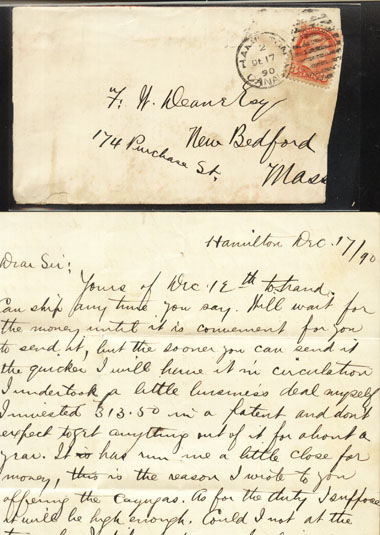 HAMILTON
2
DE 17
90
CANADA
F. W. Dean Esq
New Bedford
174 Purchase St.
Mass
Hamilton Dec. 17/90
Dear Sir:
Yours of Dec. 12th to hand.
Can ship any time you say. Will wait for
the money until it is convenient for you
to send it, but the sooner you can send it
the quicker I will have it in circulation
I undertook a little business deal myself
I invested $13.50 in a patent and dont
expect to get anything out of it for about a
year. It has run me a little close for
money, this is the reason I wrote to you
offering the cayugas. As for the duty I suppose
it will be high enough. Could I not at the